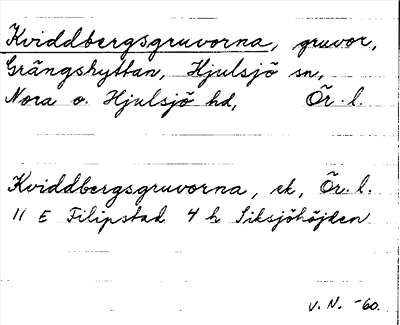 Kviddbergsgruvorna, gruvor,
Grängshyttan, Hjulsjö sn,
Nora o. Hjulsjö hd, Ör. l.
Kviddbergsgruvorna, ek, Ör. l.
11 E Filipstad 4 h Siksjöhöjden
V. N. -60.